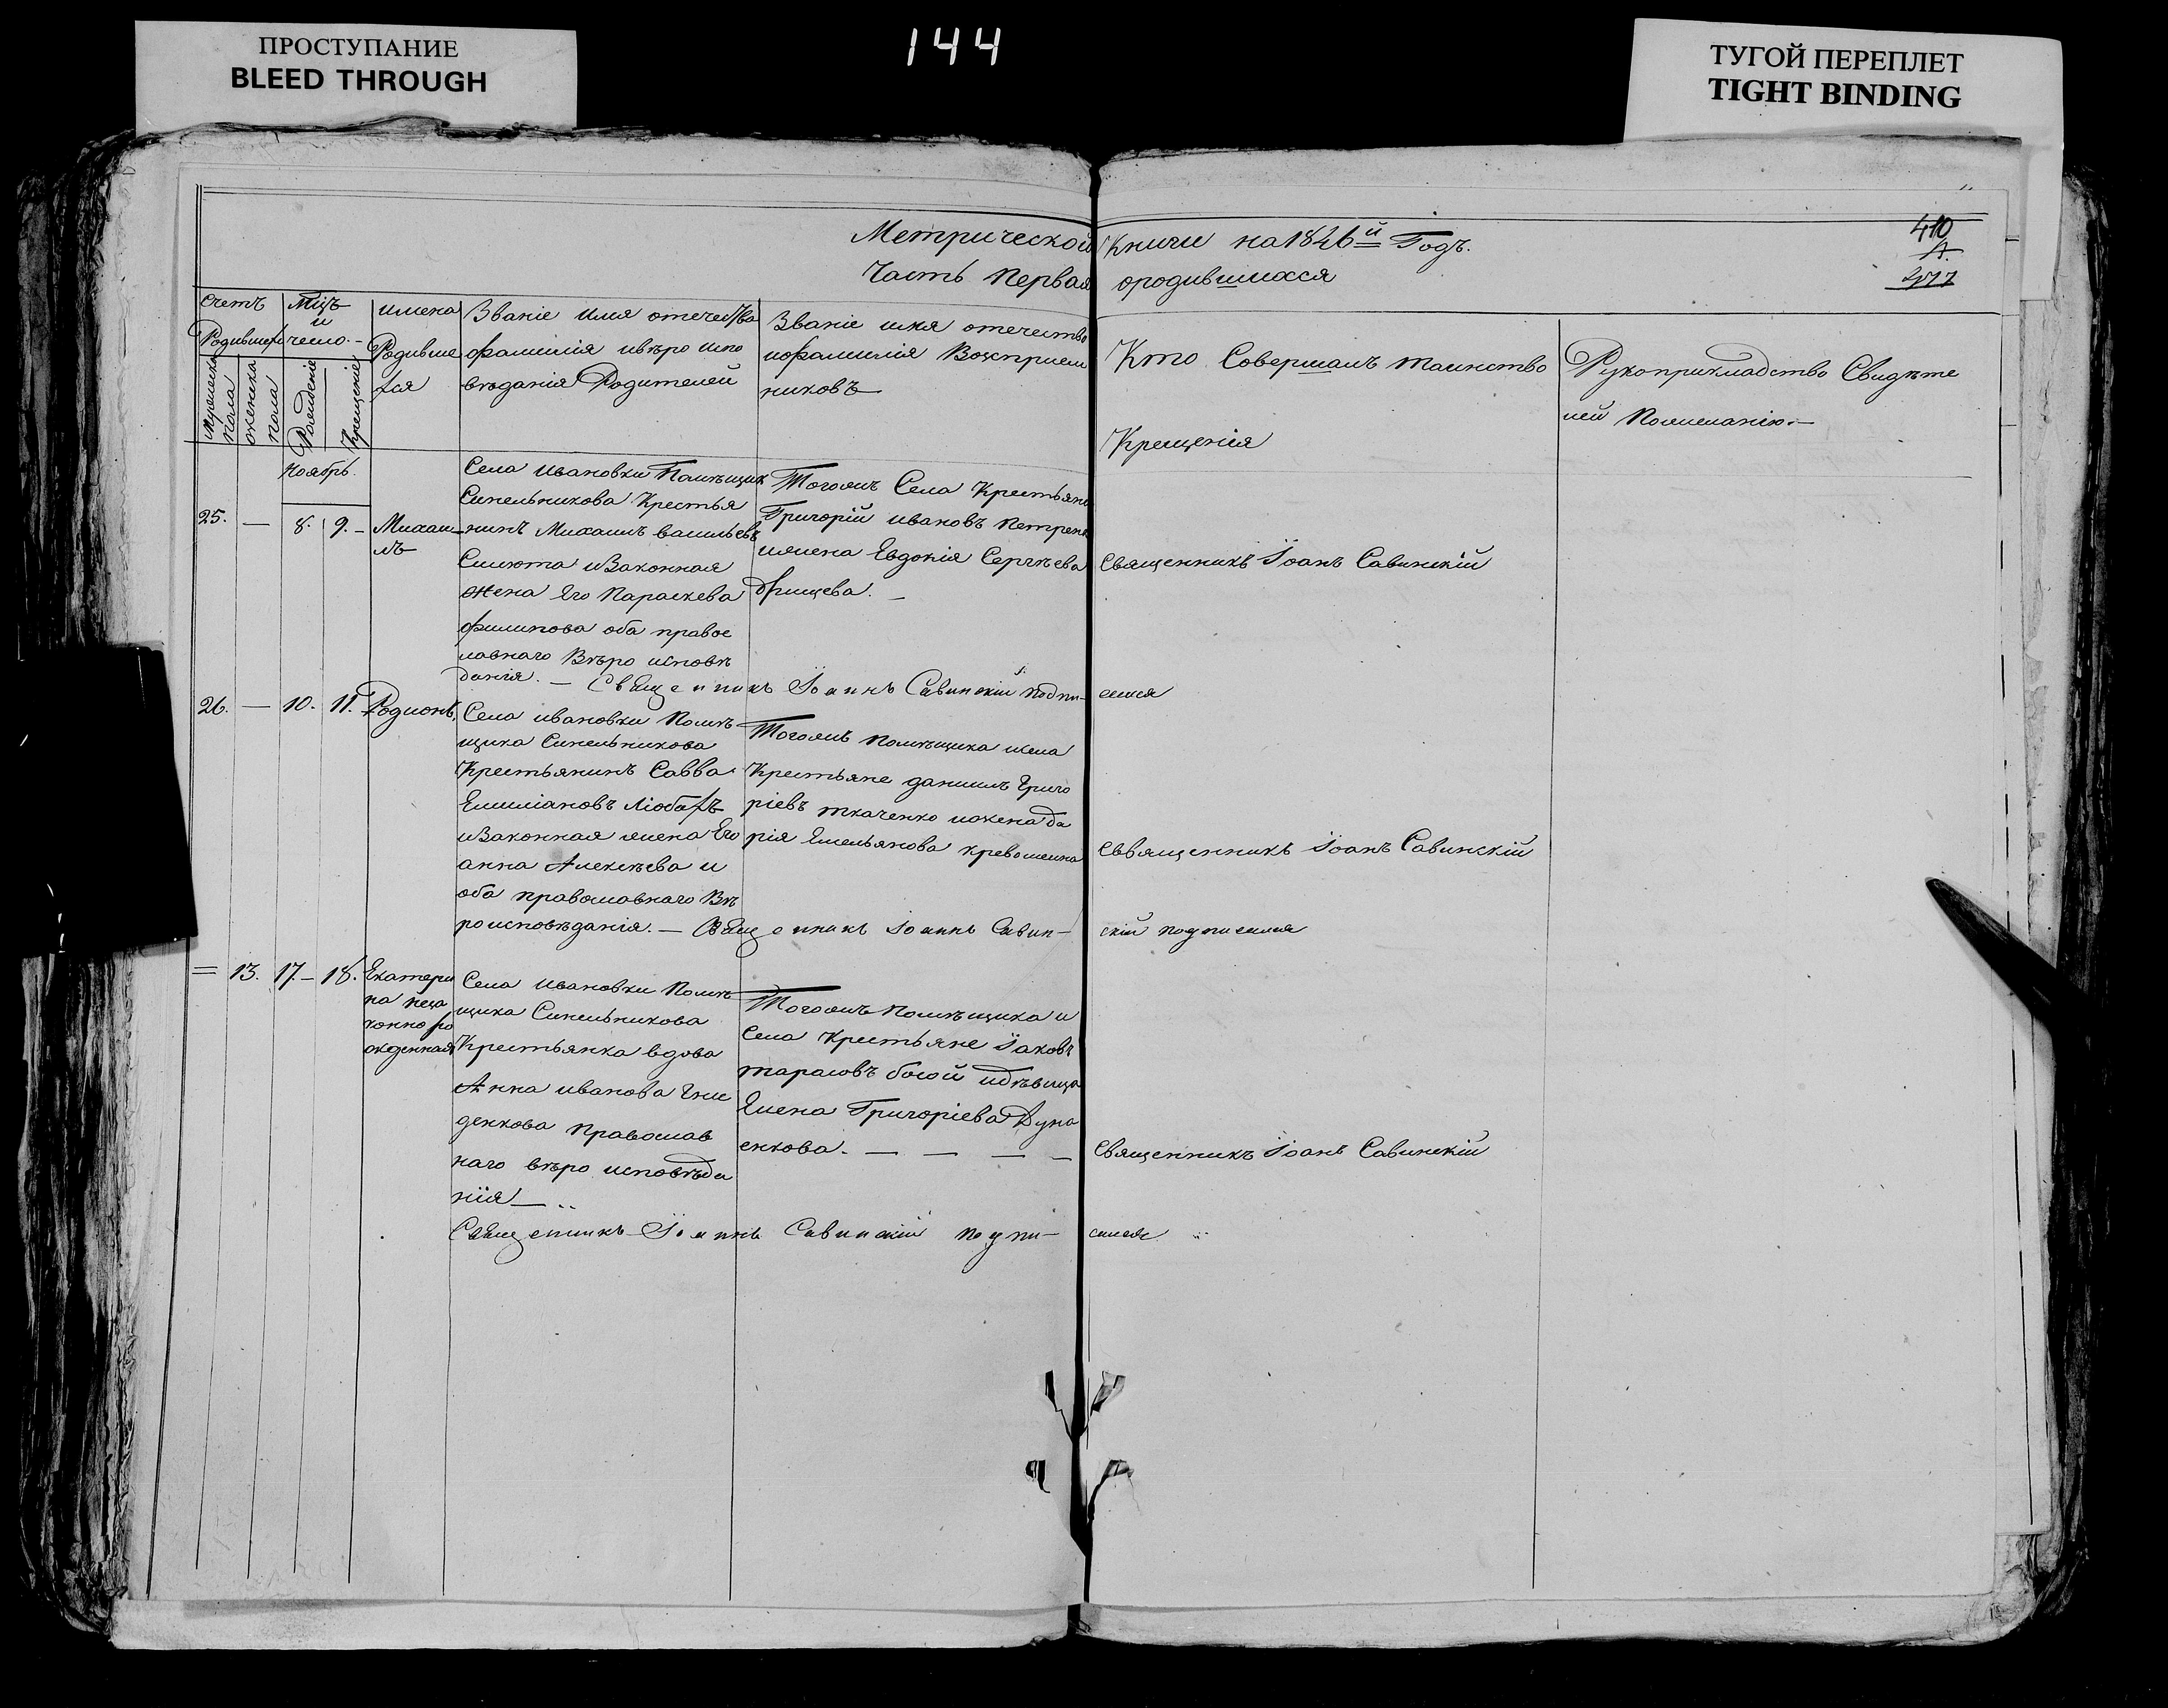 ПРОСТУПАНИЕ
BLEED THROUGH
144
ТУГОЙ ПЕРЕПЛЕТ
TIGHT BINDING
Метрической Книги на 1846й Годъ.
Часть Первая ородившихся
410
счетъ
Родивших
Мужеска пола
женска пола
Мцъ
и
число.-
Рожденіе
Крещеніе
имена
Родивше
хся
Званіе Имя отечества
фамилія ивѣро испо
вѣданія Родителей
Званіе имя отечество
иофамилія Воспріем
никовъ
Кто Совершалъ таинство
Крещенія
Рукоприкладство Свидѣте
лей Пожеланію.-
Ноябрь.
25. — 8. 9. - Михаи
лъ
Села Ивановки Помѣщик
Синельникова Крестья
нинъ Михаилъ васильевъ
иЗаконная
жена Его Параскева
филипова оба правос
лавнаго Вѣро исповѣ
данія. — Священникъ Іоаннъ Савинскій подпи-
сался
Тогожъ Села Крестьяне
Григорій ивановъ Петренк
ижена Евдокія Сергѣева
Священникъ Іоанъ Савинскій
26. — 10. 11. Родионъ.
Села ивановки Помѣ
щика Синельникова
Крестьянинъ Савва
Емиліановъ
иЗаконная жена Его
анна Алексѣева и
оба православнаго Вѣ
роисповѣданія. — Священникъ Іоаннъ Савин-
скій подписался
Тогожъ помѣщика исела
Крестьяне даниилъ Григо
ріевъ ткаченко ижена да
рія Емельянова
Священникъ Іоанъ Савинскій
= 13. 17. - 18. Екатери
на неза
конно ро
жденная
Села Ивановки Помѣ
щика Синельникова
Крестьянка вдова
Анна иванова Гни
денкова Православ
наго вѣро исповѣда
нія —
Тогожъ помѣщика и
села крестьяне Іаковъ
тарасовъ босой идѣвица
Елена Григоріева Дуна
енкова. — — — —
Священникъ Іоанъ Савинскій
Священникъ Іоаннъ Савинскій подпи-
сался